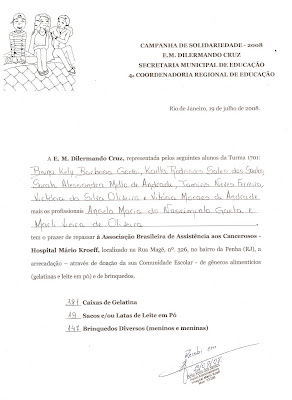 CAMPANHA DE SOLIDARIEDADE - 2008
E.M. DILERMANDO CRUZ
SECRETARIA MUNICIPAL DE EDUCAÇÃO
4a COORDENADORIA REGIONAL DE EDUCAÇÃO
Rio de Janeiro, 19 de julho de 2008.
A E. M. Dilermando Cruz, representada pelos seguintes alunos da Turma 1701:
Bruna Kely Barbosa Costa, Karlla Rodrigues Sales dos Santos,
Sarah Alessandra Mello de Andrade, Tamires Nunes Ferreira,
Victória da Silva Oliveira e Vitória Moraes de Andrade
mais os profissionais Angela Maria do Nascimento Gaeta e
Marli Vieira de Oliveira,
tem o prazer de repassar à Associação Brasileira de Assistência aos Cancerosos -
Hospital Mário Kroeff, localizado na Rua Magé, nº. 326, no bairro da Penha (RJ), a
arrecadação – através de doação da sua Comunidade Escolar - de gêneros alimentícios
(gelatinas e leite em pó) e de brinquedos.
381 Caixas de Gelatina
19 Sacos e/ou Latas de Leite em Pó
147 Brinquedos Diversos (meninos e meninas)
Recebi em